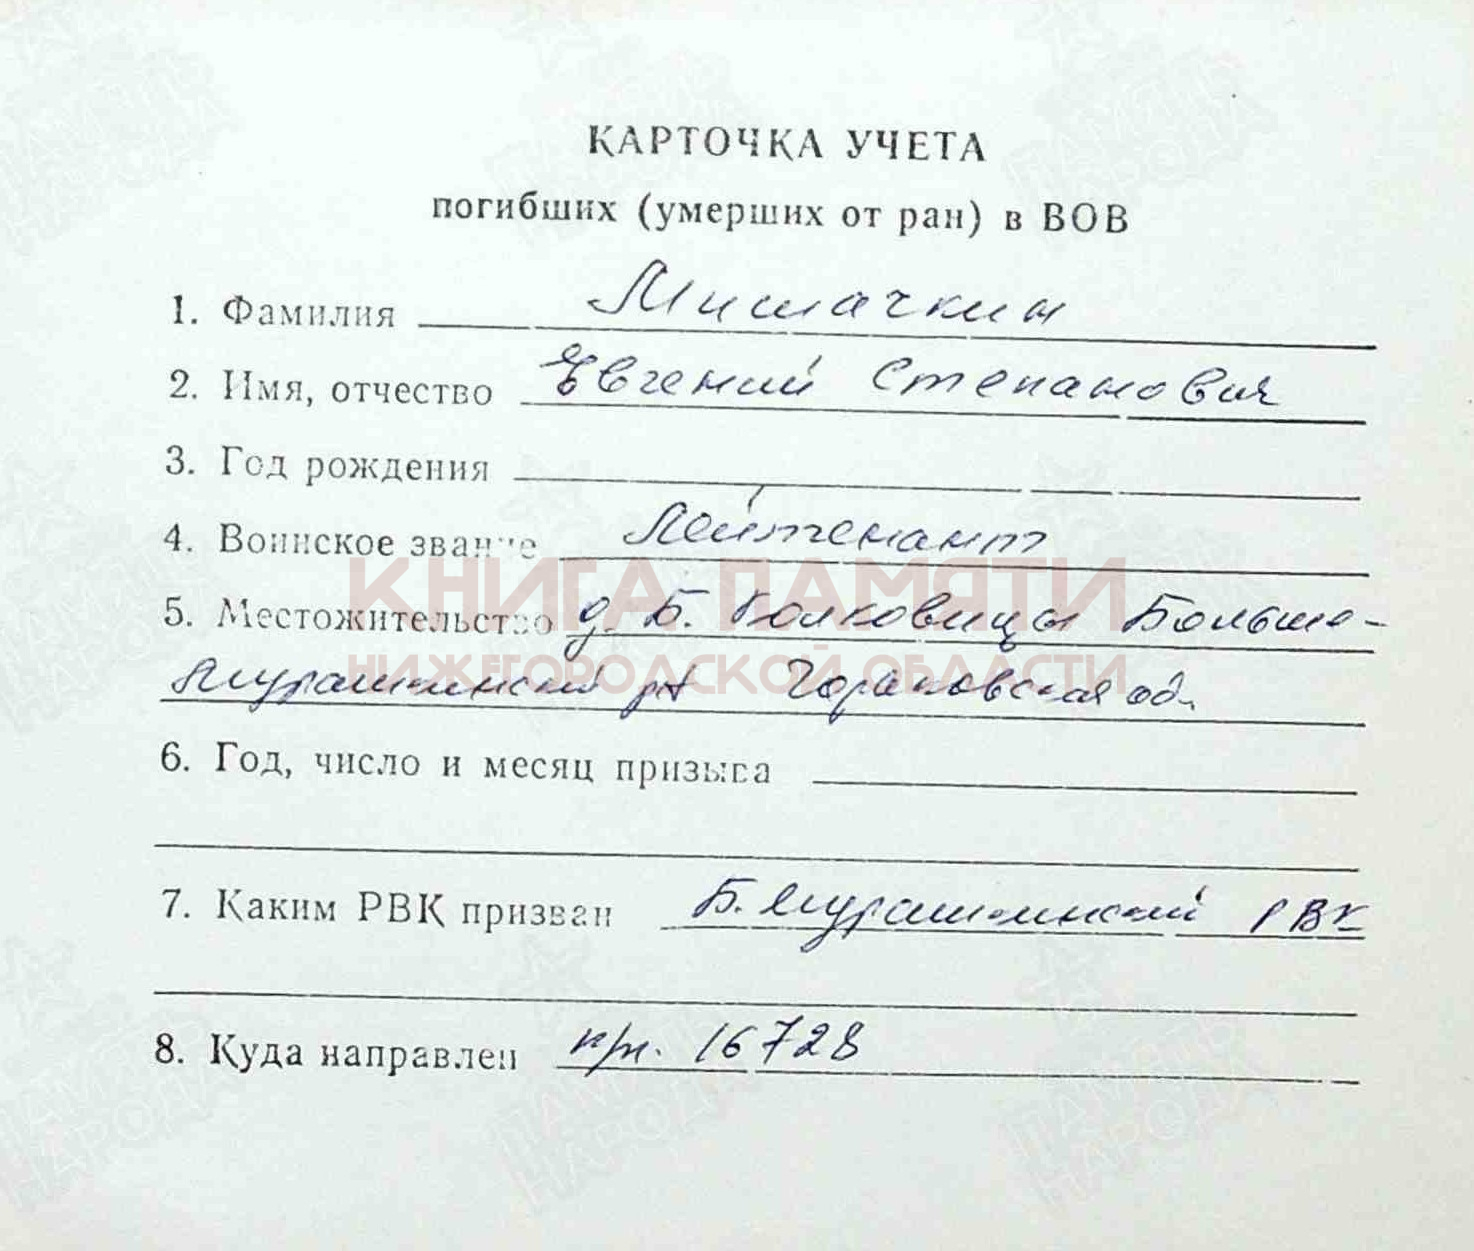 КАРТОЧКА УЧЕТА
погибших (умерших от ран) в ВОВ
1. Фамилия Мишачкин
2. Имя, отчество Евгений Степанович
3. Год рождения
4. Воинское звание Лейтенант
КНИГА ПАМЯТИ
5. Местожительство д. Б. Болковицы Больше-
НИЖЕГОРОДСКОЙ ОБЛАСТИ
мурашкинский р-н Горьковская об.
6. Год, число и месяц призыва
7. Каким РВК призван Б. Мурашкинский РВК
8. Куда направлен 16728
ПАМЯТЬ НАРОДА